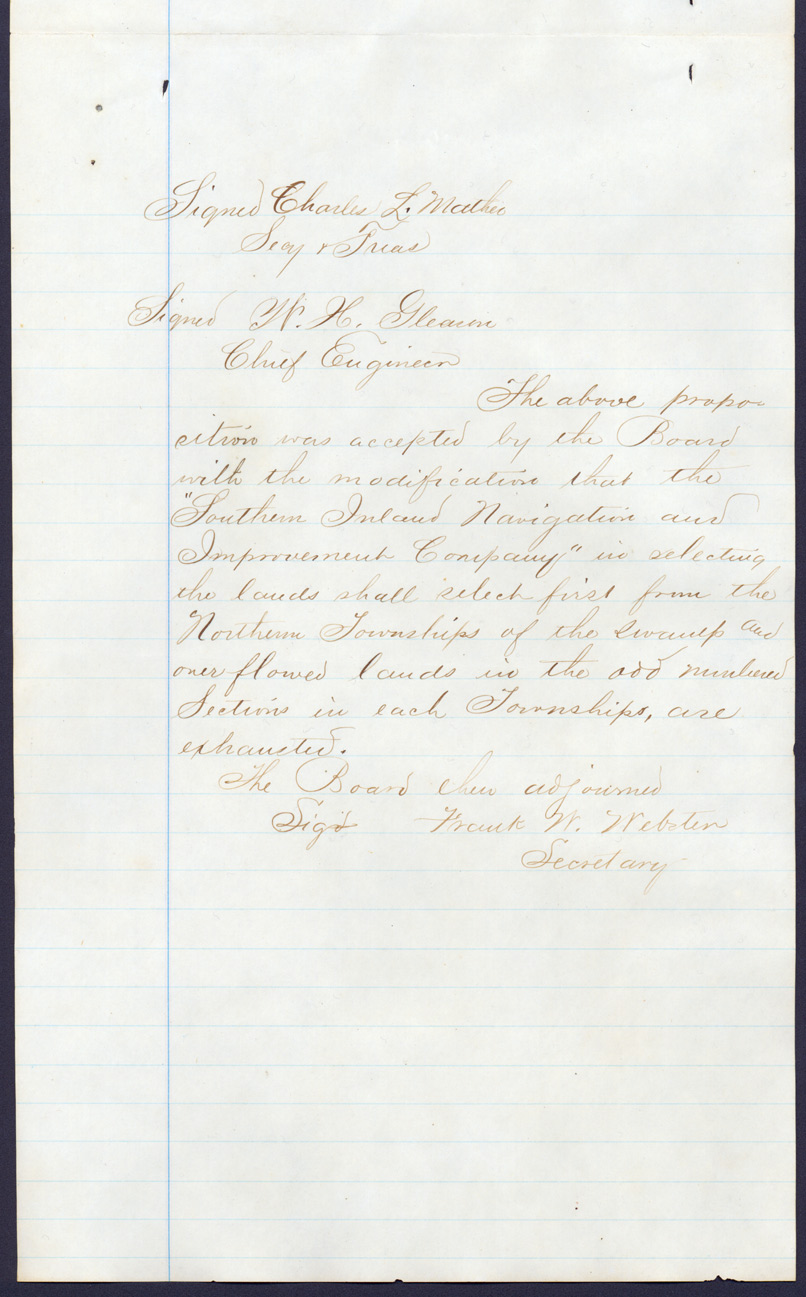 Signed Charles L. Mather
Secy & Treas
Signed W. H. Gleason
Chief Engineer
The above propo-
sition was accepted by the Board
with the modification that the
"Southern Inland Navigation and
Improvement Company" in selecting
the lands shall select first from the
Northern Townships of the swamp and
overflowed lands in the odd numbered
Sections in each Townships, are
exhausted.
The Board then adjourned
Sig'd Frank W. Webster
Secretary